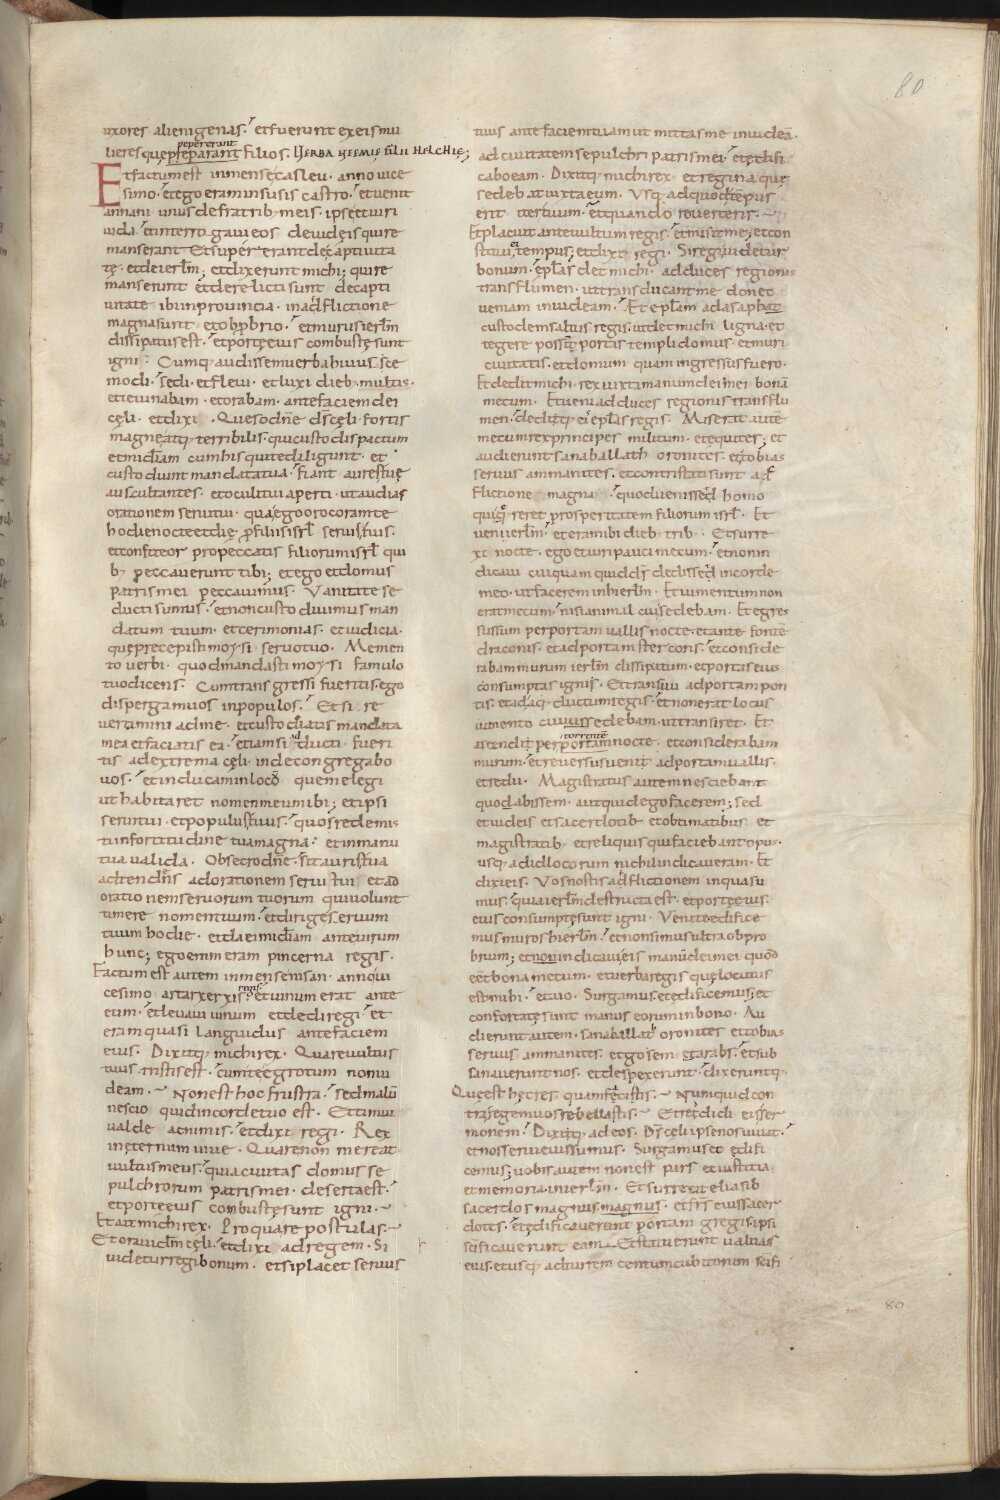 80
uxores alienigenas. et fuerunt ex eis mu
pepererant
lieres quę preparant filios. UERBA NEEMIĘ FILII HELCHIĘ;
Et factum est in mense casleu. anno uice
simo. et ego eram in susis castro. et uenit
annani unus de fratrib; meis. ipse et uiri
iuda. et interrogaui eos de iudeis qui re
manserant. Et super erant de captiuita
tę. et de ierlm; et dixerunt michi; qui re
manserunt et derelicti sunt de capti
uitate ibi in prouincia. in adflictione
magna sunt. et obpbrio. et murus ierlm
dissipatus est. et portę eius combustę sunt
igni. Cumq; audissem uerba huiusce
modi. sedi. et fleui. et luxi dieb; multis.
et ieiunabam. et orabam. ante faciem dei
cęli. et dixi. Queso dne ds cęli. fortis
magne atq; terribilis. qui custodis pactum
et midiam cum his qui te diligunt. et
custodiunt mandata tua. fiant aures tuę
auscultantes. et oculi tui aperti. ut audias
orationem serui tui. qua ego oro coram te
hodie nocte et die. p filiis isrl seruis tuis.
et confiteor pro peccatis filiorum isrl qui
b; peccauerunt tibi; et ego et domus
patris mei peccauimus. Vanitate se
ducti sumus. et non custodiuimus man
datum tuum. et cerimonias. et iudicia.
quę precepisti moysi seruo tuo. Memen
to uerbi. quod mandasti moysi famulo
tuo dicens. Cum transgressi fueritis. ego
dispergam uos in populos. Et si re
uertimini ad me. et custodiatis mandata
mea et faciatis ea. etiam si abducti fueri
tis ad extrema cęli. inde congregabo
uos. et inducam in loco quem elegi
ut habitaret nomen meum ibi; et ipsi
serui tui. et populus tuus. quos redemis
ti in fortitudine tua magna. et in manu
tua ualida. Obsecro dne. sit auris tua
adtendens ad orationem serui tui. et ad
orationem seruorum tuorum qui uolunt
timere nomen tuum. et dirige seruum
tuum hodie. et da ei midiam ante uirum
hunc; ego enim eram pincerna regis.
Factum est autem in mense nisan. anno ui
regis
cesimo artarxerxis. et uinum erat ante
eum. et leuaui uinum et dedi regi. et
eram quasi languidus ante faciem
eius. Dixitq; michi rex. Quare uultus
tuus tristis est. cum te egrotum non ui
deam. Non est hoc frustra. sed malum
nescio quid in corde tuo est. Et timui
ualde ac nimis. et dixi regi. Rex
in ęternum uiue. Quare non mereat
uultus meus. quia ciuitas domus se
pulchrorum patris mei. deserta est.
et portę eius combustę sunt igni.
Et ait michi rex. Pro qua re postulas.
Et oraui dm cęli. et dixi ad regem. Si
uidetur regi bonum. et si placet seruus
tuus ante faciem tuam ut mittas me in iudea.
ad ciuitatem sepulchri patris mei. et ędifi
cabo eam. Dixitq; michi rex et regina quę
sedebat iuxta eum. Usq; ad quod tempus
erit iter tuum. et quando reuerteris.
Et placuit ante uultum regis. et misit me; et con
stitui ei tempus; et dixi regi. Si regi uidetur
bonum. eplas det michi. ad duces regionis
trans flumen. ut transducant me donec
ueniam in iudeam. Et eplam ad asaphat
custodem saltus regis. ut det michi ligna. et
tegere possim portis templi domus. et muri
ciuitatis. et domum quam ingressus fuero.
Et dedit michi rex iuxta manum dei mei bonā
mecum. Et ueni ad duces regionis trans flu
men. dediq; ei eplas regis. Miserat autē
mecum rex principes militum. et equites; et
audierunt sanaballath oronites. et tobias
seruus ammanites. et contristati sunt ad
flictione magna. quod uenisset homo
qui quereret prosperitatem filiorum isrl. Et
ueni ierlm. et eram ibi dieb; trib;. Et surre
xi nocte. ego et uiri pauci mecum. et non in
dicaui cuiquam quid ds dedisset in corde
meo. ut facerem in hierlm. Et iumentum non
erat mecum. nisi animal cui sedebam. Et egres
sus sum per portam uallis nocte. et ante fontē
draconis. et ad portam stercoris. et conside
rabam murum ierlm dissipatum. et portas eius
consumptas igni. Et transiui ad portam pon
tis. et ad aqueductum regis. et non erat locus
iumento cui sedebam. ut transiret. Et
torrentē
ascendi per portam nocte. et considerabam
murum. et reuersus ueni ad portam uallis.
et redii. Magistratus autem nesciebant
quod abissem. aut quid ego facerem; sed
et iudeis et sacerdotib; et obtimatibus et
magistratib; et reliquis qui faciebant opus.
usq; ad id locorum nichil indicaueram. Et
dixi eis. Vos nostis adflictionem in qua su
mus. quia ierlm destructa est. et portę eius.
eius consumptę sunt igni. Venite edifice
mus muros hierlm. et non simus ultra obpro
brium; et non indicaui eis manum dei mei quod
eet bona mecum. et uerba regis quę locutus
est mihi. et aio. Surgamus. et ędificemus; et
confortatę sunt manus eorum in bono. Au
dierunt autem. sanaballat oronites et tobias
seruus ammanites. et gosem garabs. et sub
sannauerunt nos. et despexerunt dixeruntq;.
Quę est hęc res quam facitis. Numquid con
tra regem uos rebellastis. Et reddidi eis ser
monem. Dixitq; ad eos. Ds cęli ipse nos iuuat.
et nos serui eius sumus. Surgamus et ędifi
cemus; uobis autem non est pars et iustitia
et memoria in ierlm. Et surrexit eliasib
sacerdos magnus. magnus. et frs eius sacer
dotes. et ędificauerunt portam gregis. ipsi
scificauerunt eam. Et statuerunt ualuas
eius. et usq; ad turrem centum cubitorum scifi
80